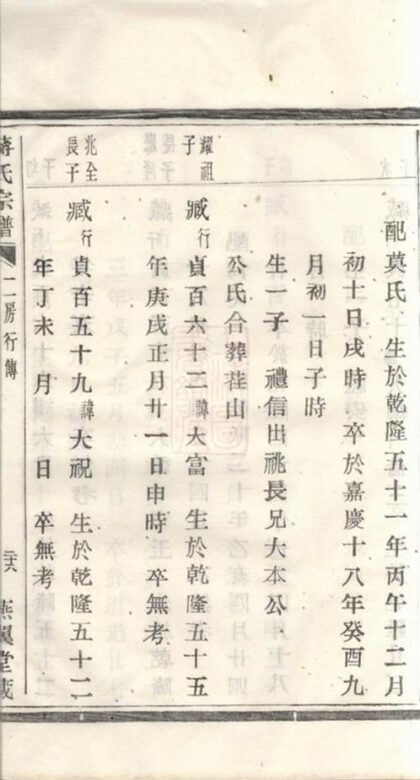 配莫氏 生於乾隆五十一年丙午十二月
初十日戌時卒於嘉慶十八年癸酉九
月初一日子時
生一子 禮信出祧長兄大本公
公氏合葬荏山
耀祖
子
臧行貞百六十二諱大富 生於乾隆五十五
年庚戌正月廿一日申時 卒無考
兆全
長子
臧行貞百五十九諱大祝 生於乾隆五十二
年丁未十月 日 卒無考
蔣氏宗譜
二房行傳
燕翼堂藏